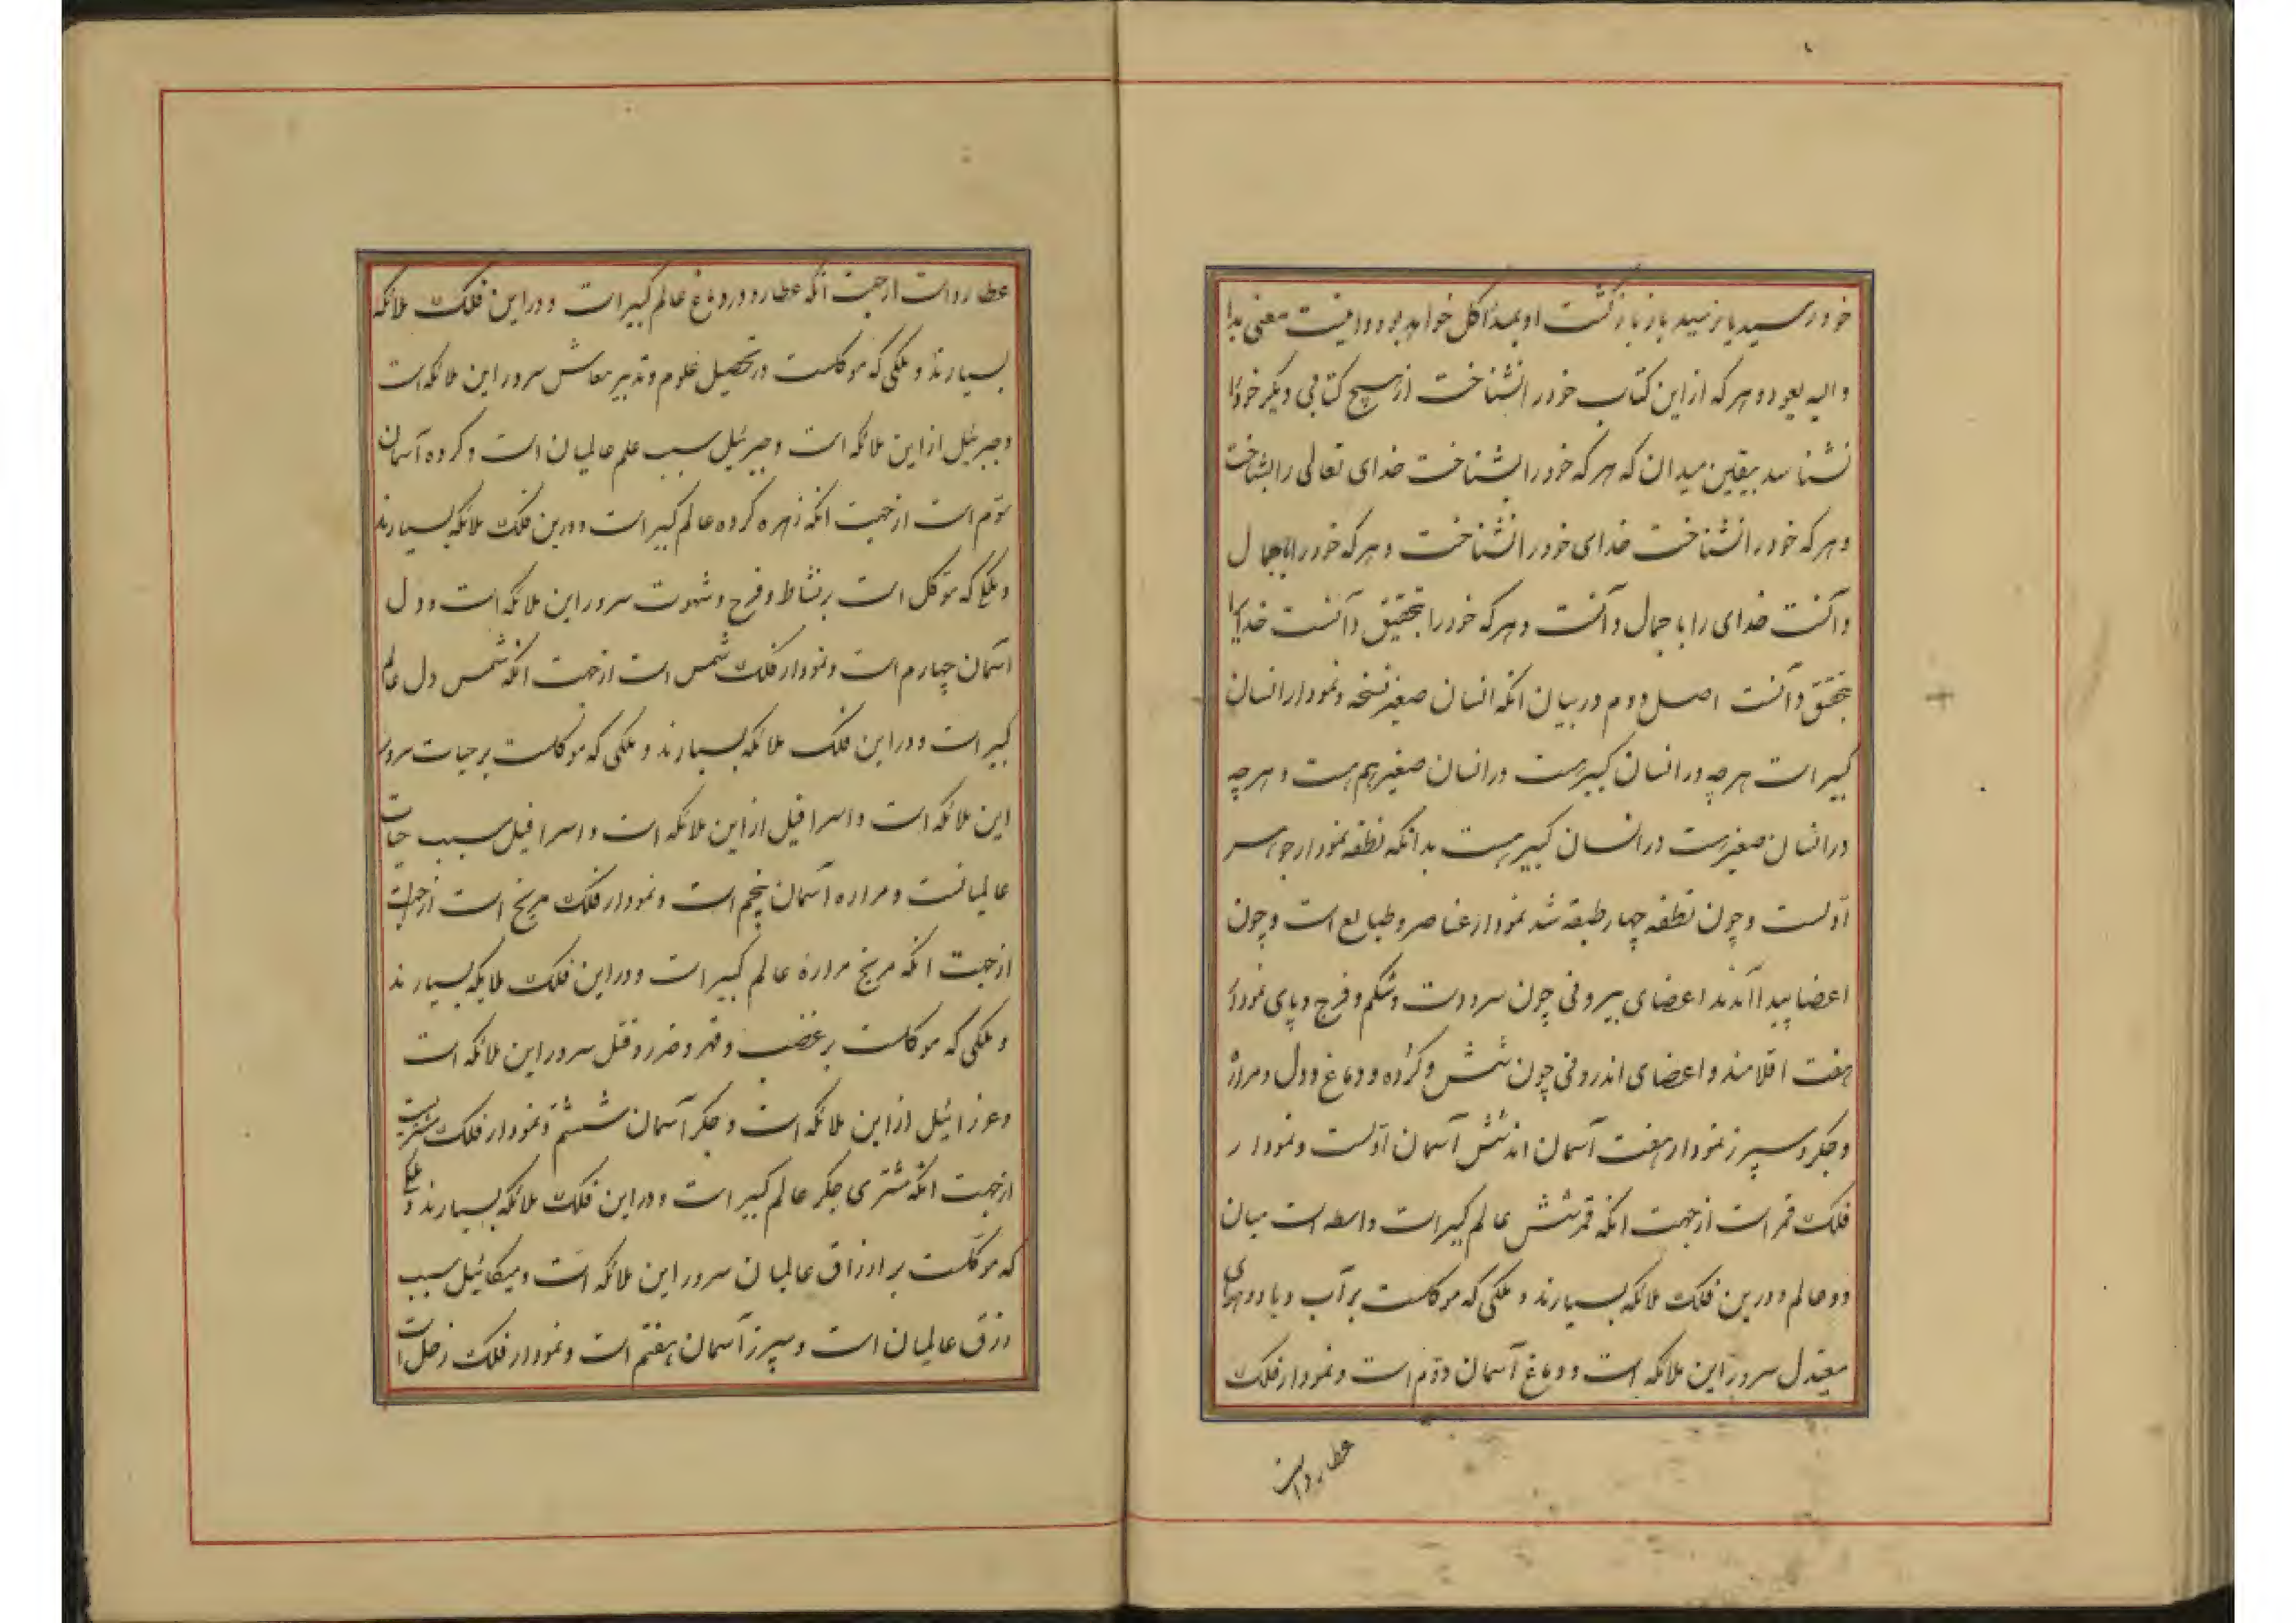 خود رسید یا نرسید باز بازگشت او بمبدأ کل خواهد بود و اینست معنی بدا
والیه یعود و هر که از این کتاب خود را نشناخت از هیچ کتابی دیگر خود را
نشناسد بیقین میدان که هر که خود را بشناخت خدای تعالی را بشناخت
و هر که خود را نشناخت خدای خود را نشناخت و هر که خود را باجمال
دانست خدای را باجمال دانست و هر که خود را بتحقیق دانست خدایرا
بتحقیق دانست اصل دوم در بیان آنکه انسان صغیر نسخه و نمودار انسان
کبیر است هر چه در انسان کبیرست در انسان صغیر هم هست و هر چه
در انسان صغیرست در انسان کبیر هست بدانکه نطفه نمودار جوهر
اولست و چون نطفه چهار طبقه شد نمودار عناصر و طبایع است و چون
اعضا پیدا آمدند اعضای بیرونی چون سر و دست و شکم و فرج و پای نمودار
هفت اقلامند و اعضای اندرونی چون شش و گرده و دماغ و دل و مراره
و جگر و سپرز نمودار هفت آسمان اند شش آسمان اولست و نمودار
فلک قمر است از جهت آنکه قمر شش عالم کبیر است واسطه است میان
دو عالم و درین فلک ملائکه بسیارند و ملکی که موکلست بر آب و باد و هوای
معتدل سرور این ملائکه است و دماغ آسمان دوم است و نمودار فلک
عطارد است
عطارد است از جهت آنکه عطارد دماغ عالم کبیر است و در این فلک ملائکه
بسیارند و ملکی که موکلست در تحصیل علوم و تدبیر معاش سرور این ملائکه است
و جبرئیل از این ملائکه است و جبرئیل سبب علم عالمیان است و گرده آسمان
سوم است از جهت آنکه زهره گرده عالم کبیر است و درین فلک ملائکه بسیارند
و ملکی که موکل است بر نشاط و فرح و شهوت سرور این ملائکه است و دل
آسمان چهارم است و نمودار فلک شمس است از جهت آنکه شمس دل عالم
کبیر است و در این فلک ملائکه بسیارند و ملکی که موکلست بر حیات سرور
این ملائکه است و اسرافیل از این ملائکه است و اسرافیل سبب حیات
عالمیانست و مراره آسمان پنجم است و نمودار فلک مریخ است از جهت
از جهت آنکه مریخ مراره عالم کبیر است و در این فلک ملائکه بسیارند
و ملکی که موکلست بر غضب و قهر و ضرر و قتل سرور این ملائکه است
و عزرائیل از این ملائکه است و جگر آسمان ششم و نمودار فلک مشتریست
از جهت آنکه مشتری جگر عالم کبیر است و در این فلک ملائکه بسیارند و ملکی
که موکلست بر ارزاق عالمیان سرور این ملائکه است و میکائیل سبب
رزق عالمیان است و سپرز آسمان هفتم است و نمودار فلک زحل است